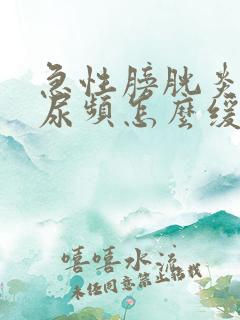 急性膀胱炎
尿頻怎麼緩
嘻嘻水流
未經同意禁止轉載